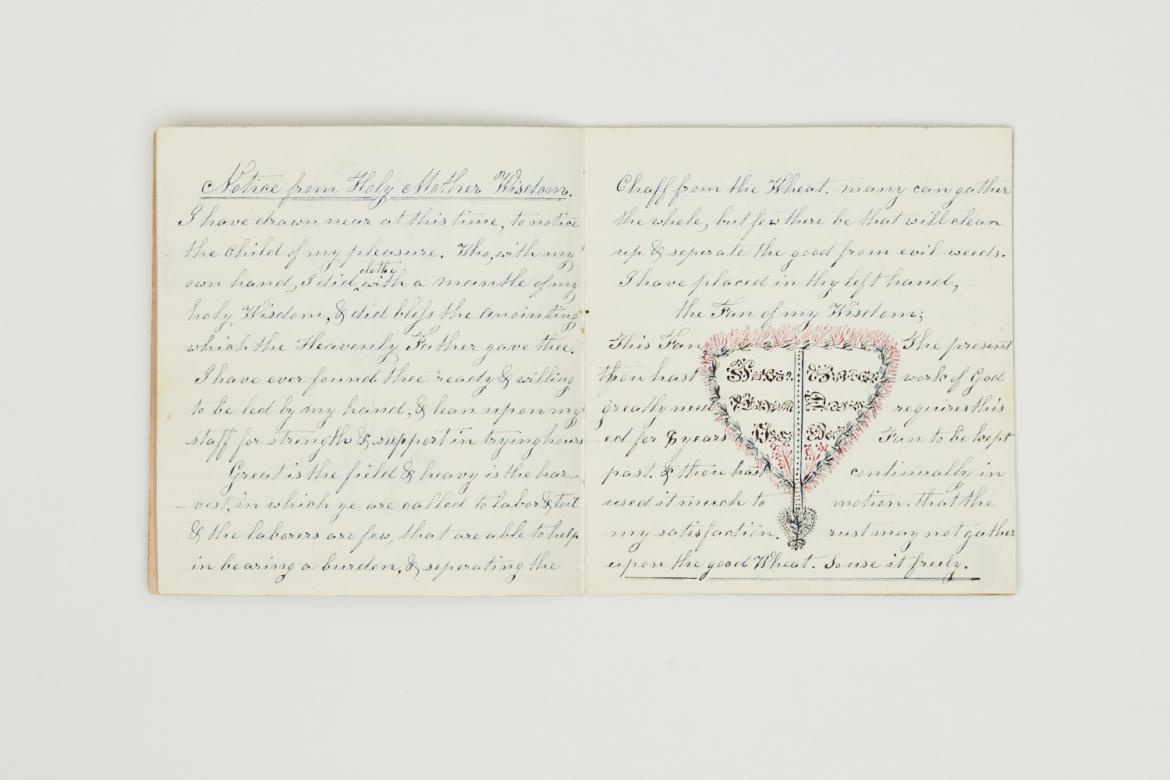 Notice from Holy Mother Wisdom.
I have drawn near at this time, to notice
the Child of my pleasure. Who, with my
own hand, I did clothe with a mantle of my
holy Wisdom, & did bless the anointing
which the Heavenly Father gave thee.
I have ever found thee ready & willing
to be led by my hand, & lean upon my
staff for strength & support in trying hours
Great is the field & heavy is the har-
-vest, in which ye are called to labor & toil
& the laborers are few, that are able to help
in bearing a burden, & seperating the
Chaff from the Wheat. many can gather
the whole, but few there be that will clean
up & seperate the good from evil weeds.
I have placed in thy left hand,
the Fan of my Wisdom;
This Fan
thou hast
greatly need
ed for 8 years
past. & thou hast
used it much to
my satisfaction.
The present
work of God
requires this
Fan to be kept
continually in
motion. that the
rust may not gather
upon the good Wheat. So use it freely.